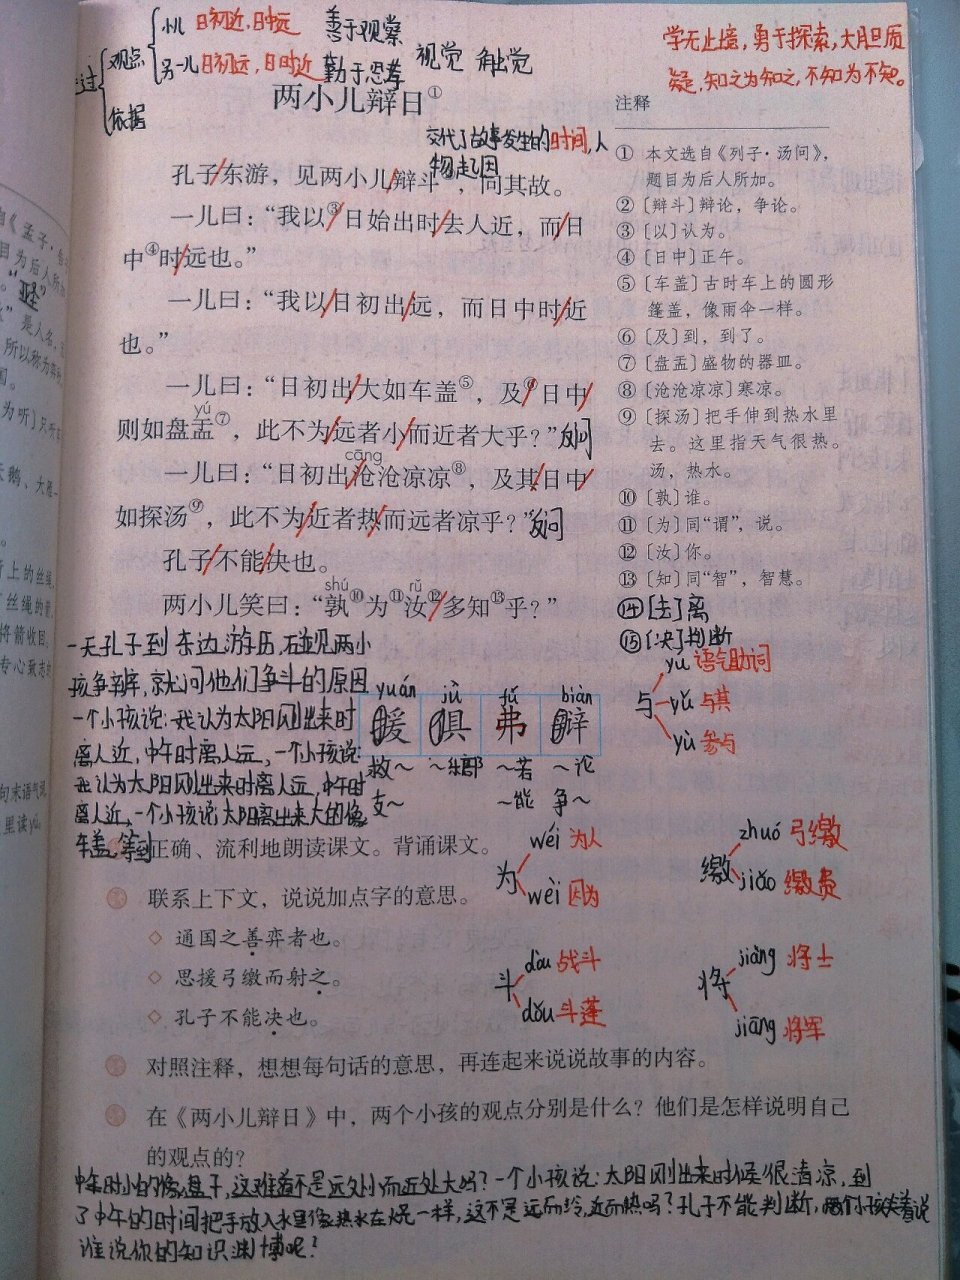 观点
小儿 日初近，日中远
另一儿 日初远，日时近
依据
善于观察
勤于思考
视觉 触觉
学无止境，勇于探索，大胆质
疑，知之为知之，不知为不知。
两小儿辩日①
交代了故事发生的时间，人
物起因
孔子/东游，见两小儿/辩斗，问其故。
一儿曰：“我以③/日始出时/去人近，而/日
中④时/远也。”
一儿曰：“我以/日初出/远，而日中时/近
也。”
一儿曰：“日初出/大如车盖⑤，及/⑥日中/
yú
则如盘盂⑦，此不为/远者小/而近者大乎？”反问
cāng
一儿曰：“日初出/沧沧凉凉⑧，及其/日中
如探汤⑨，此不为/近者热/而远者凉乎？”反问
孔子/不能/决也。
shú rǔ
两小儿笑曰：“孰⑩为⑪汝⑫/多知⑬乎？”
注释
① 本文选自《列子·汤问》，
题目为后人所加。
②〔辩斗〕辩论，争论。
③〔以〕认为。
④〔日中〕正午。
⑤〔车盖〕古时车上的圆形
篷盖，像雨伞一样。
⑥〔及〕到，到了。
⑦〔盘盂〕盛物的器皿。
⑧〔沧沧凉凉〕寒凉。
⑨〔探汤〕把手伸到热水里
去。这里指天气很热。
汤，热水。
⑩〔孰〕谁。
⑪〔为〕同“谓”，说。
⑫〔汝〕你。
⑬〔知〕同“智”，智慧。
⑭[去]离
⑮[决]判断
一天孔子到东边游历，碰见两小
孩争辩，就问他们争斗的原因
一个小孩说：我认为太阳刚出来时
离人近，中午时离人远，一个小孩说：
我认为太阳刚出来时离人远，中午时
离人近，一个小孩说太阳离出来大的像
车盖，等到
yuán jù fú biàn
援 俱 弗 辩
救～ ～乐部 ～若 ～论
支～ ～能 争～
与
yú 语气助词
yǔ 与其
yù 参与
正确、流利地朗读课文。背诵课文。
联系上下文，说说加点字的意思。
◇ 通国之善弈者也。
◇ 思援弓缴而射之。
◇ 孔子不能决也。
为
wéi 为人
wèi 因为
缴
zhuó 弓缴
jiǎo 缴费
斗
dòu 战斗
dǒu 斗蓬
将
jiàng 将士
jiāng 将军
对照注释，想想每句话的意思，再连起来说说故事的内容。
在《两小儿辩日》中，两个小孩的观点分别是什么？他们是怎样说明自己
的观点的？
中午时小的像盘子，这难道不是远处小而近处大吗？一个小孩说：太阳刚出来时候很清凉，到
了中午的时间把手放入水里像热水在焜一样，这不是远而冷，近而热吗？孔子不能判断，两个小孩笑着说
谁说你的知识渊博呢？